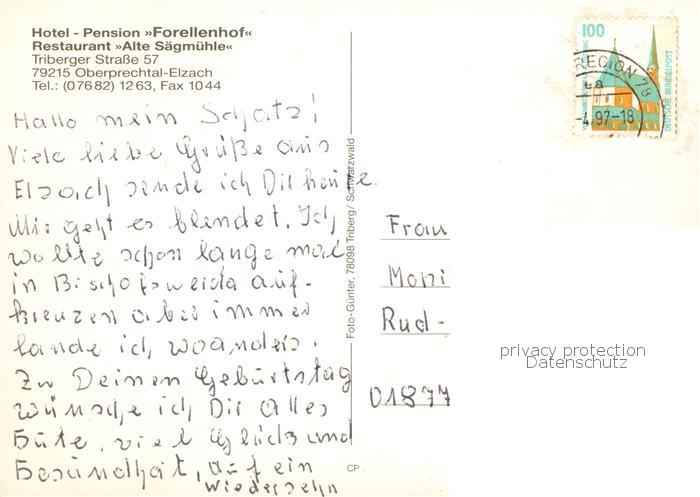 Hotel - Pension »Forellenhof«
Restaurant »Alte Sägmühle«
Triberger Straße 57
79215 Oberprechtal-Elzach
Tel.: (07682) 1263, Fax 1044
Hallo mein Schatz!
Viele liebe Grüße aus
Elzach sende ich Dir heute.
Mir geht es blendet. Ich
wollte schon lange mal
in Bischofswerda auf-
kreuzen aber immer
lande ich woanders.
Zu Deinen Geburtstag
wünsche ich Dir alles
Gute, viel Glück und
Gesundheit, auf ein
Wiedersehn
Foto-Günter, 78098 Triberg/Schwarzwald
CP
100
DEUTSCHE BUNDESPOST
REGION 78
-4.97-18
Frau
Moni
Rud-
01877
privacy protection
Datenschutz